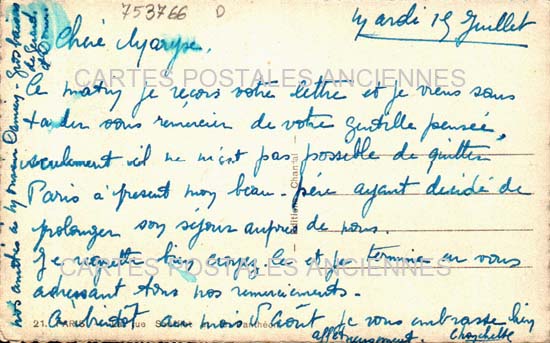 753766 D
Mardi 15 Juillet
Chère Maryse,
CARTES POSTALES ANCIENNES
Ce matin je reçois votre lettre et je viens sans
tarder vous remercier de votre gentille pensée,
seulement il ne m'est pas possible de quitter
Paris à présent mon beau-père ayant décidé de
prolonger son séjour auprès de nous.
Je regrette bien croyez le et je termine en vous
CARTES POSTALES ANCIENNES
adressant tous nos remerciements.
21. PARIS rue Panthéon
A bientôt au mois d'Août je vous embrasse bien
affectueusement.
nos amitiés à Gros baisers
de Gérard
Chantal